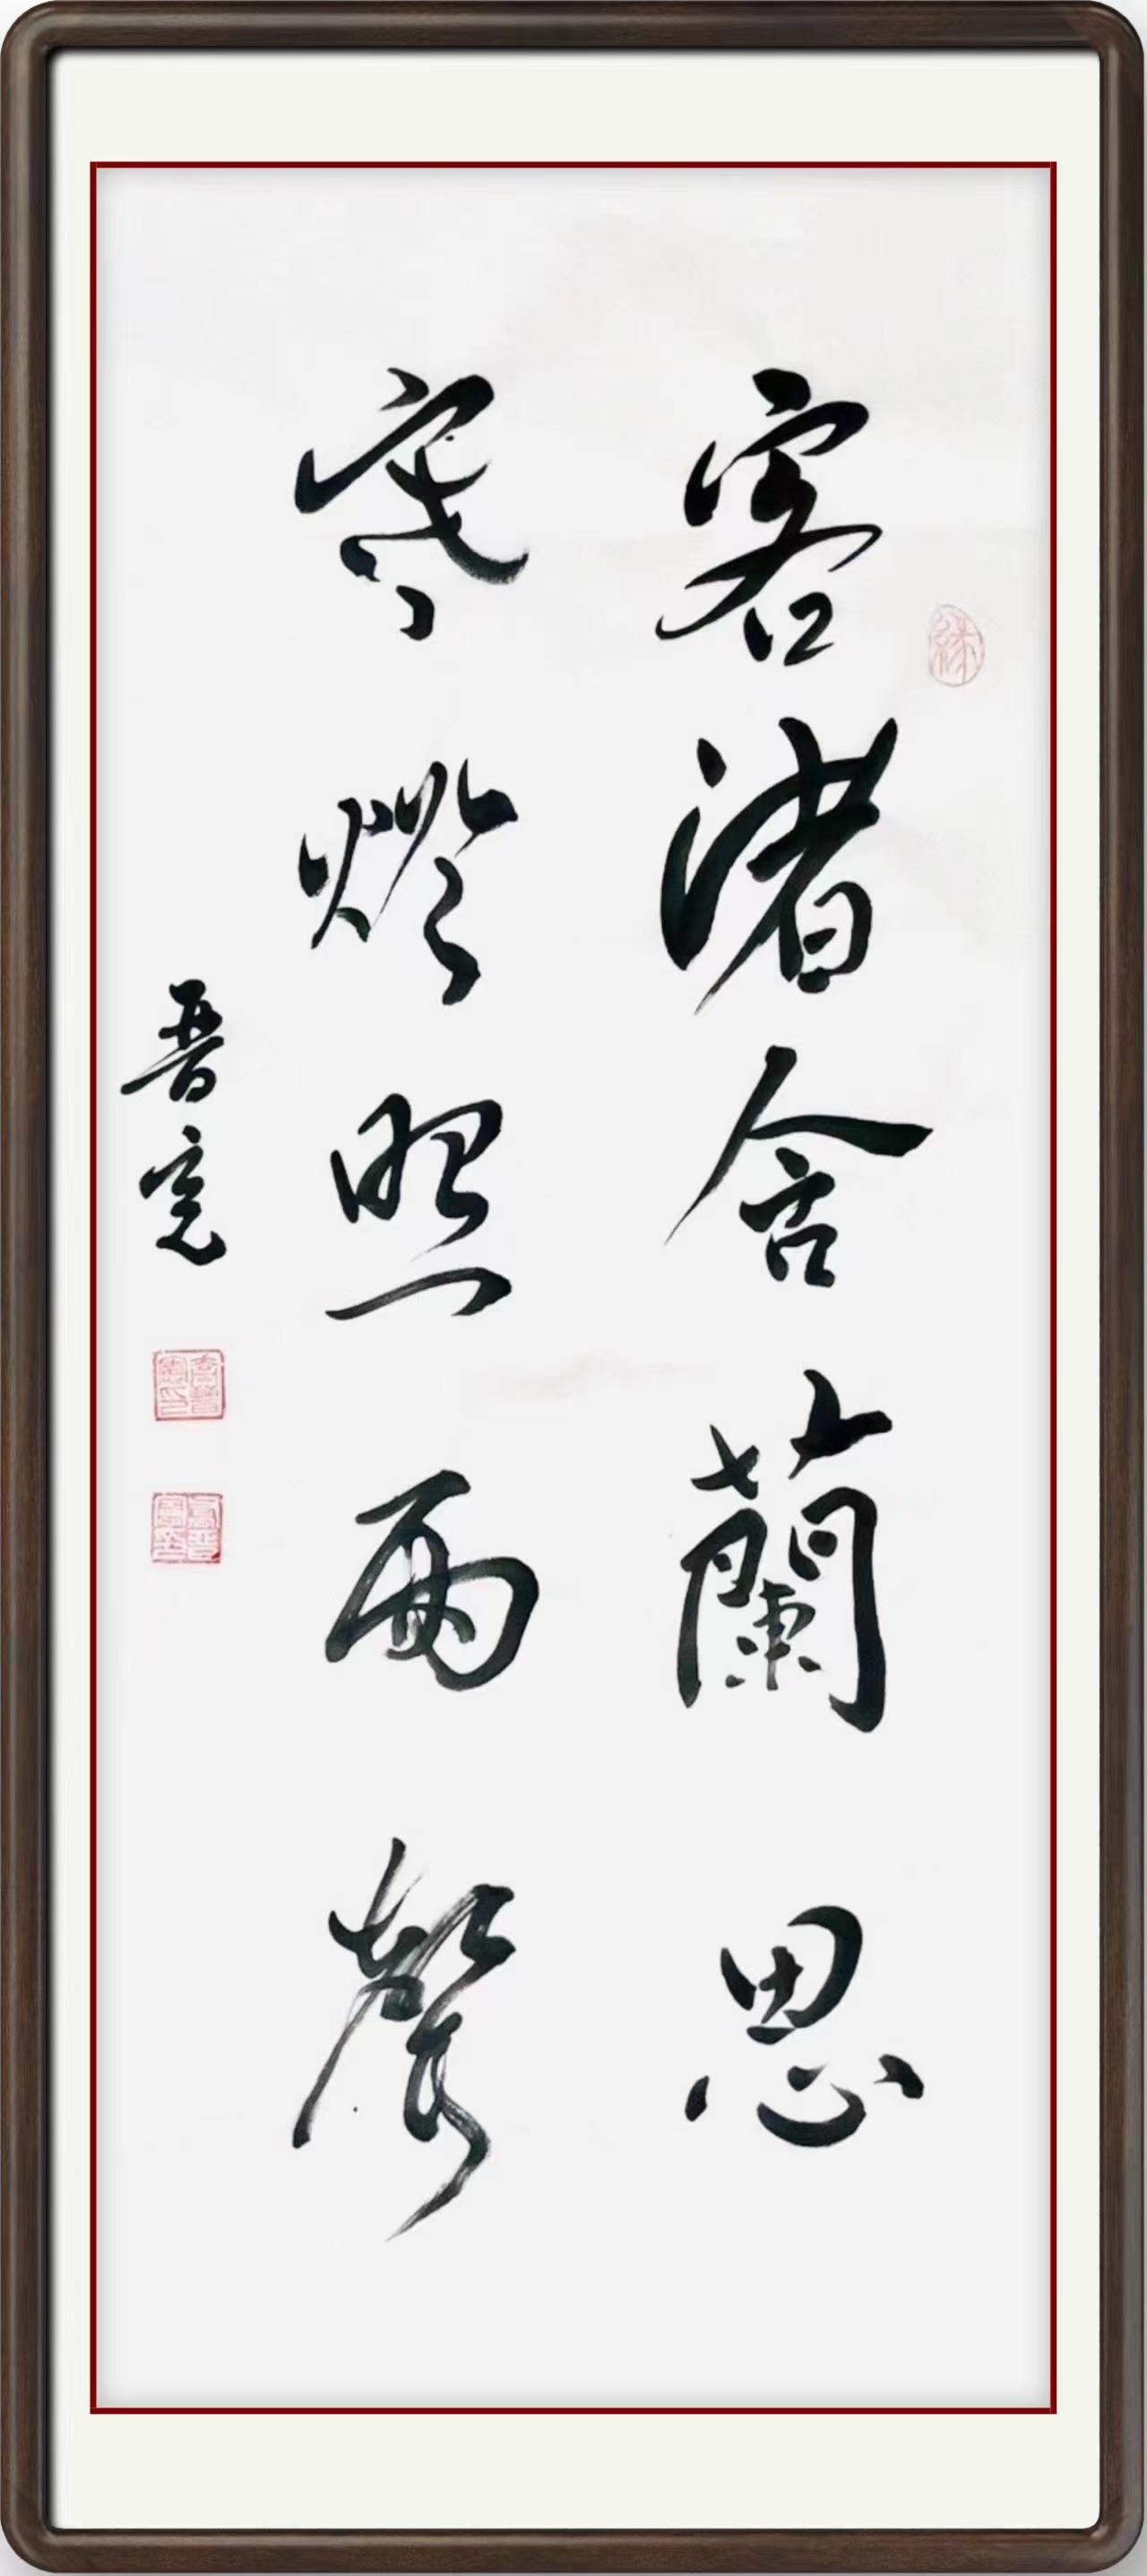 客渚含蘭思
寒燈照雨聲
晋